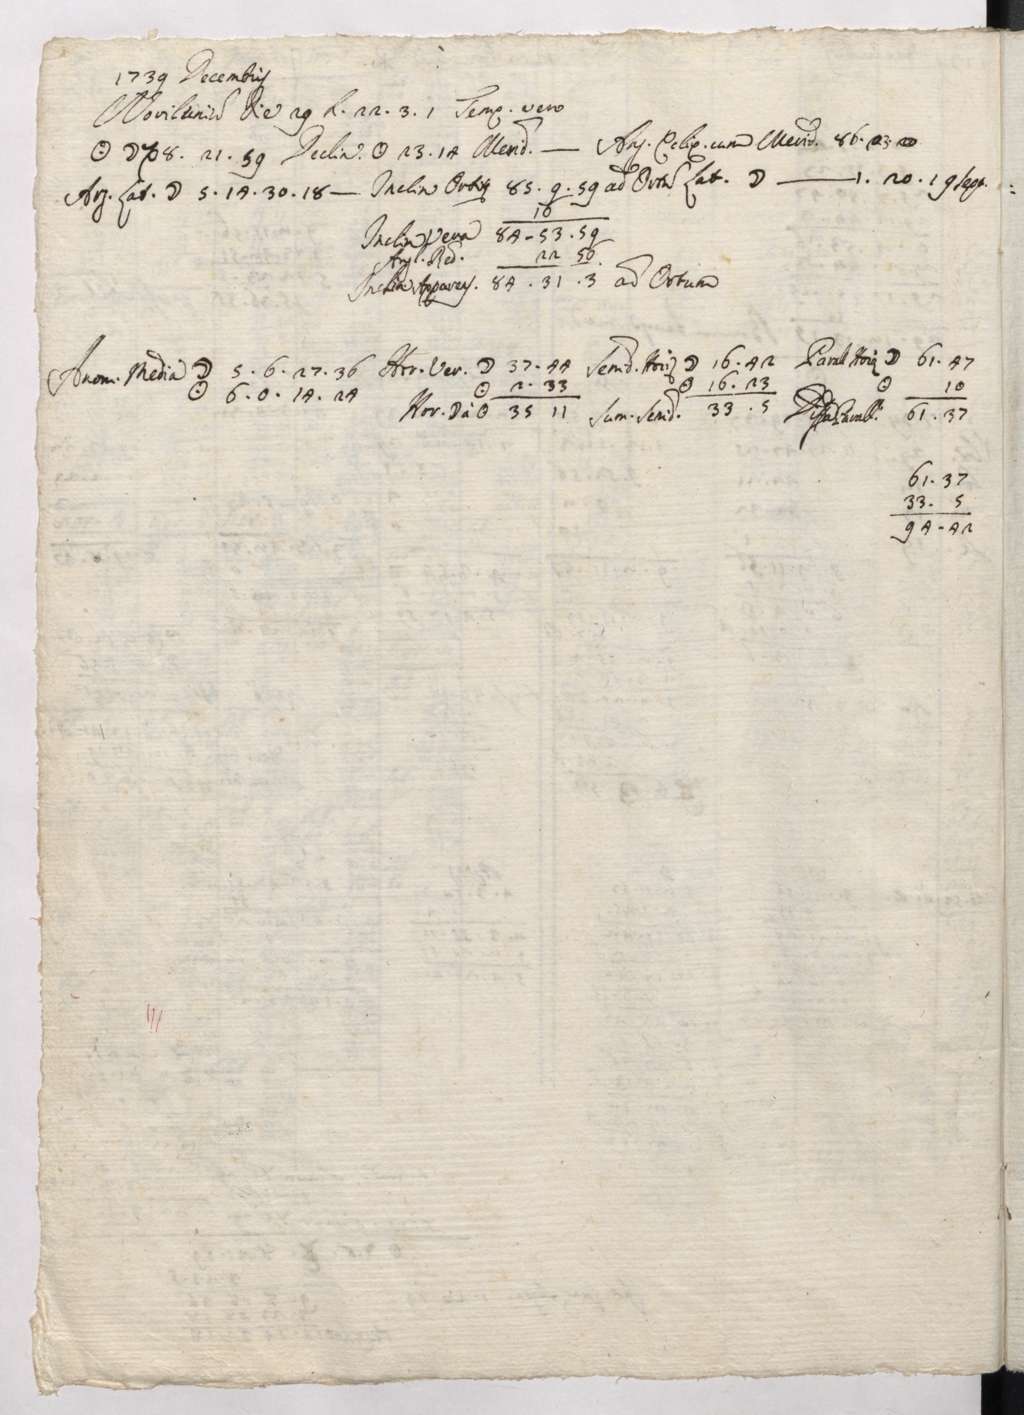 1739 Decembris
Novilunium Die 29 h. 22. 3. 1 Temp. vero
☉ ☽ ♑ 8. 21. 59 Declin. ☉ 23. 14 Merid. — Ang. Eclip. cum Merid. 86. 23 20
Arg. Lat. ☽ 5. 14. 30. 18 — Inclin Orbitæ 85. 9. 59 ad Ortum Lat. ☽ — 1. 20. 19 Sept.
16
Inclin. Vera 84 - 53. 59
Ang. Red. 22 56.
Inclin. Apparens. 84. 31. 3 ad Ortum
Anom. Media ☽ 5. 6. 27. 36 Hor. Ver. ☽ 37. 44 Semid. Horiz ☽ 16. 42 Parall Horiz ☽ 61. 47
☉ 6. 0. 14. 24 ☉ 2. 33 ☉ 16. 23 ☉ 10
Hor. ☽ à ☉ 35 11 Sum. Semid. 33. 5 Diffa Parall. 61. 37
61. 37
33. 5
94 - 42